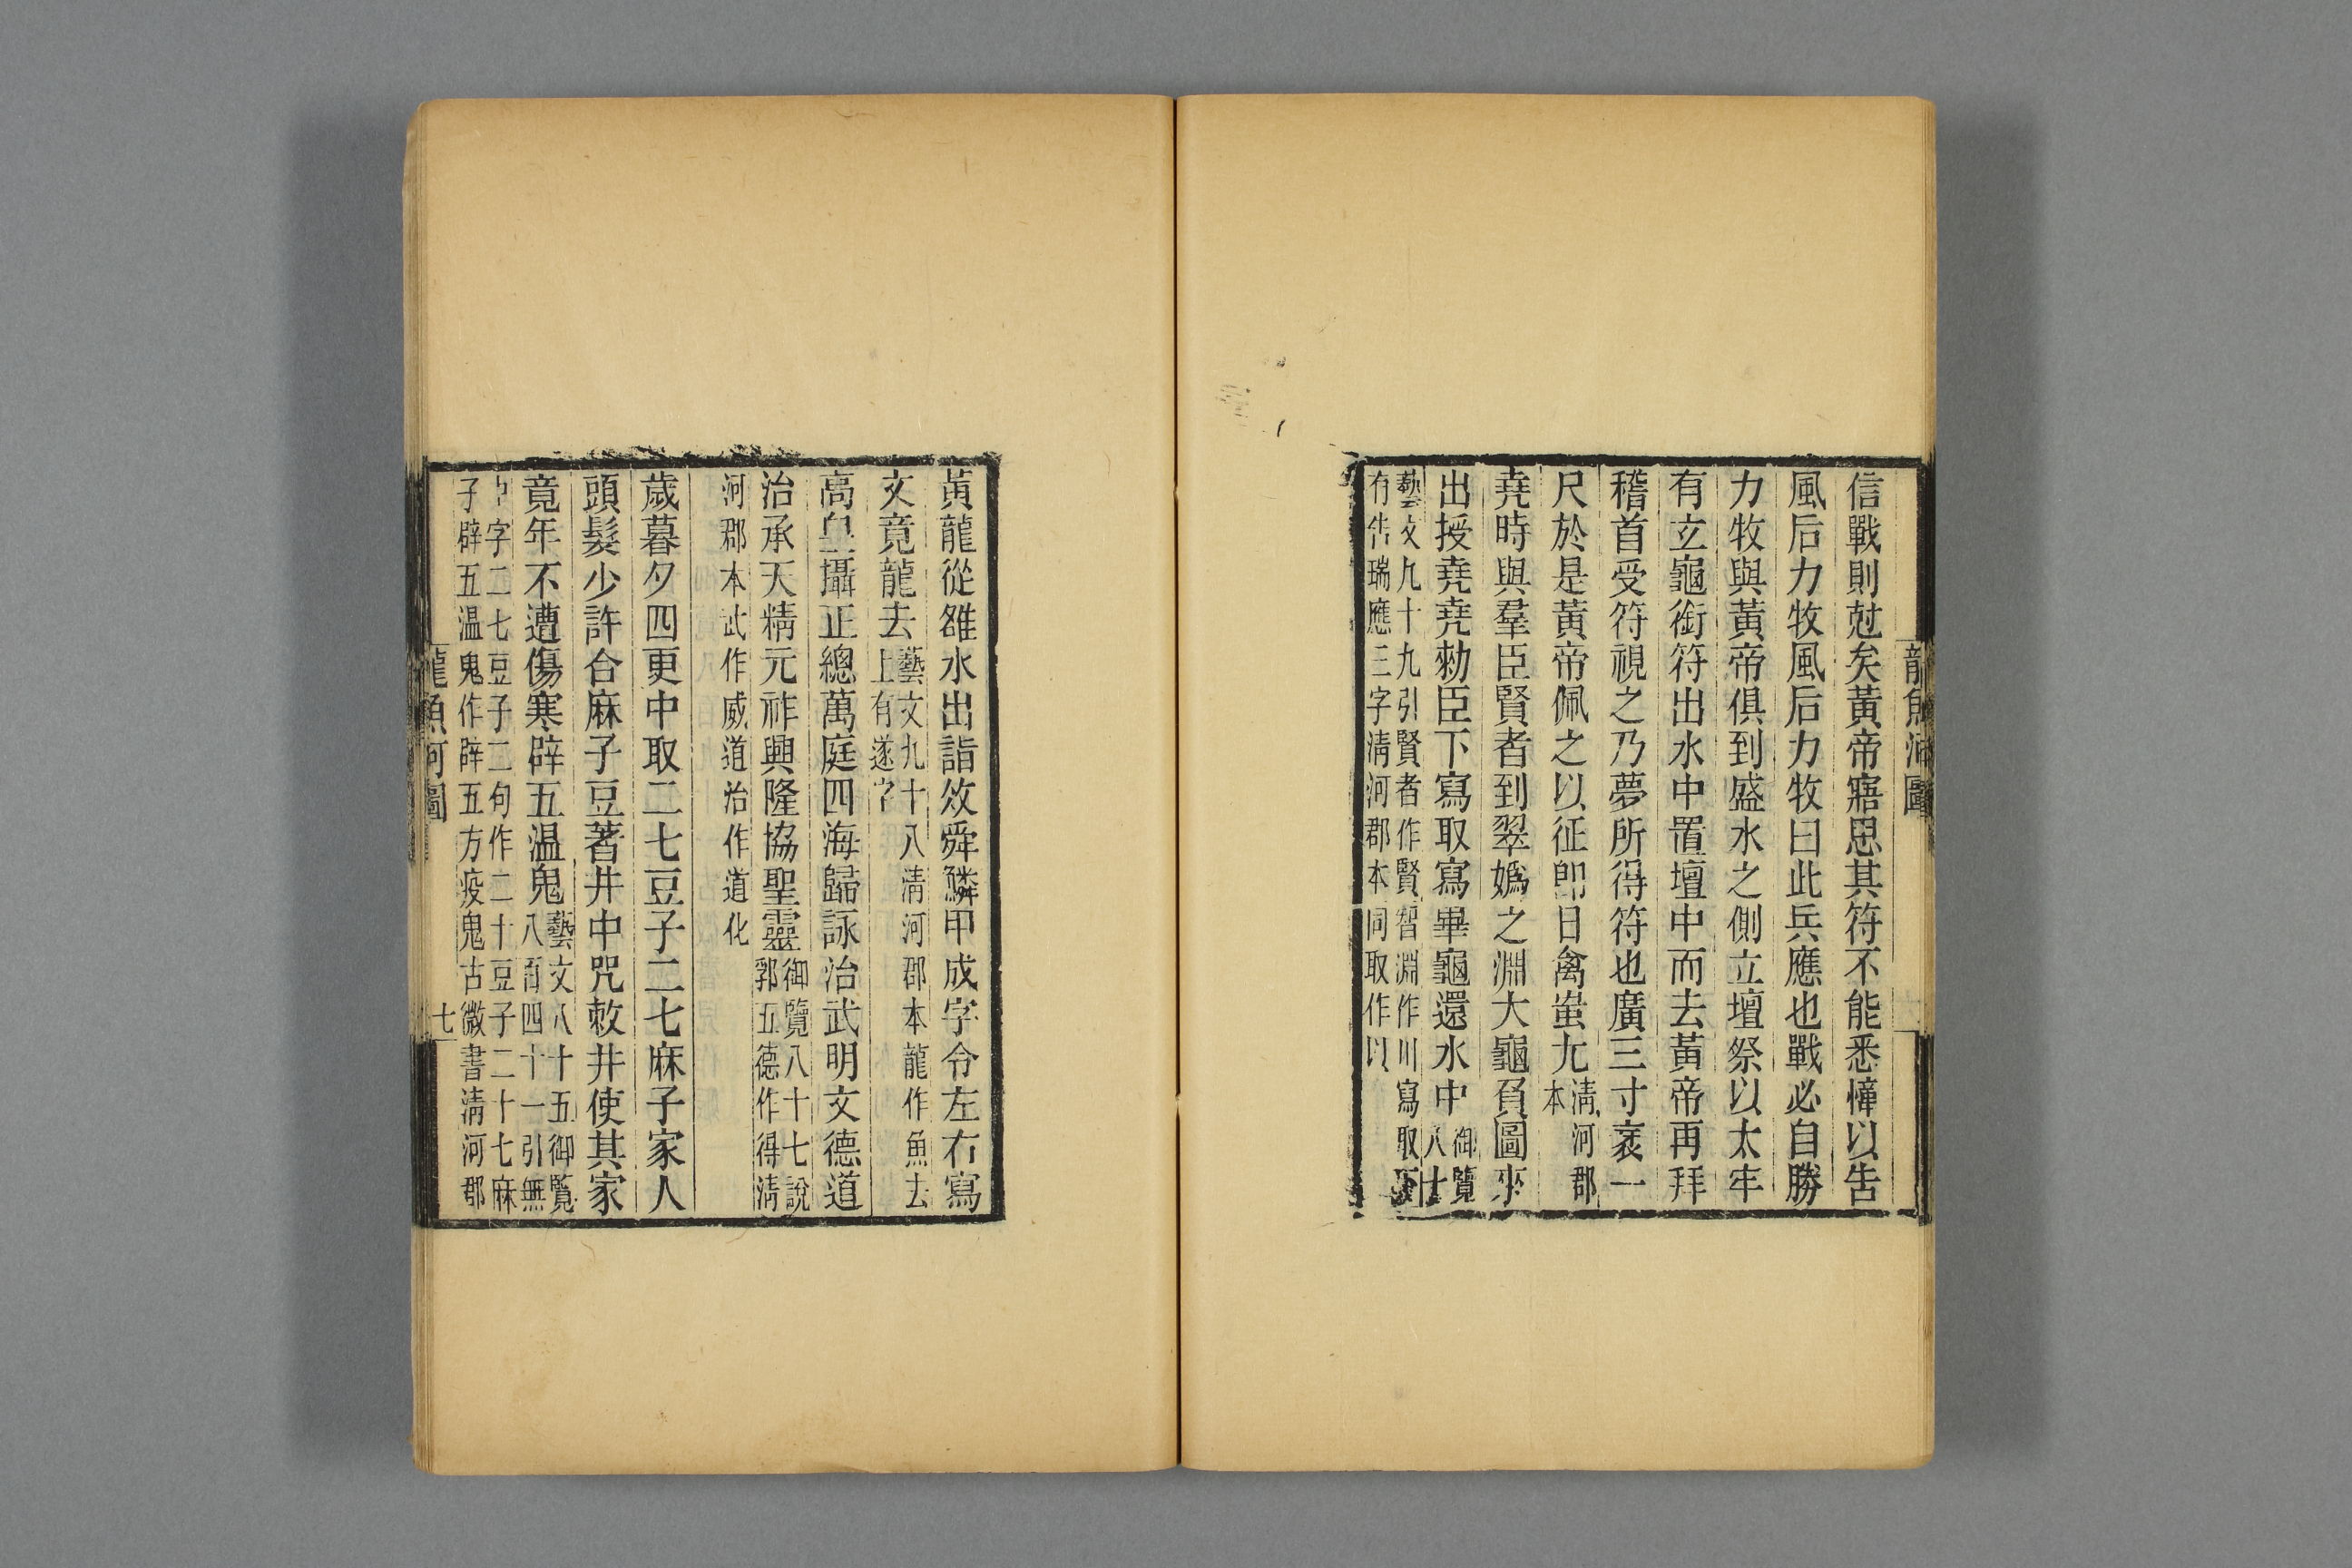 龍魚河圖
信戰則尅矣黃帝寤思其符不能悉憶以告
風后力牧風后力牧曰此兵應也戰必自勝
力牧與黃帝俱到盛水之側立壇祭以太牢
有玄龜銜符出水中置壇中而去黃帝再拜
稽首受符視之乃夢所得符也廣三寸袤一
尺於是黃帝佩之以征卽日禽蚩尤淸河郡
本
堯時與羣臣賢者到翠嬀之淵大龜負圖來
出授堯堯勑臣下寫取寫畢龜還水中御覽
八十
藝文九十九引賢者作賢智淵作川寫取下
有告瑞應三字淸河郡本同取作以
黃龍從雒水出詣效舜鱗甲成字令左右寫
文竟龍去藝文九十八淸河郡本龍作魚去
上有遂字
高皇攝正總萬庭四海歸詠治武明文德道
治承天精元祚興隆協聖靈御覽八十七說
郛五德作得淸
河郡本武作威道治作道化
歲暮夕四更中取二七豆子二七麻子家人
頭髮少許合麻子豆著井中咒敕井使其家
竟年不遭傷寒辟五温鬼藝文八十五御覽
八百四十一引無
中字二七豆子二句作二十豆子二十七麻
子辟五温鬼作辟五方疫鬼古微書淸河郡
龍魚河圖
七